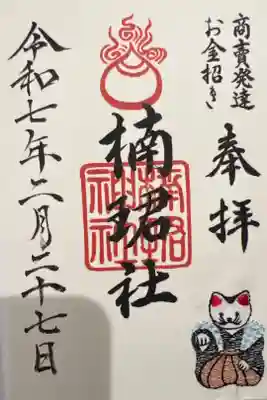 商賣発達
お金招き
奉拝
楠珺社
令和七年二月二十七日